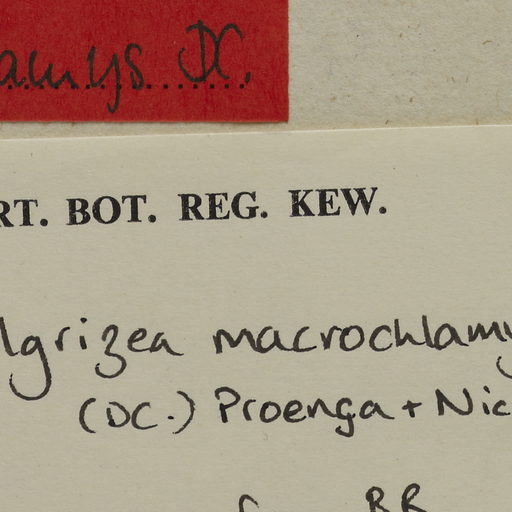 amys DC.
RT. BOT. REG. KEW.
lgrizea macrochlamy
(DC.) Proença + Nic